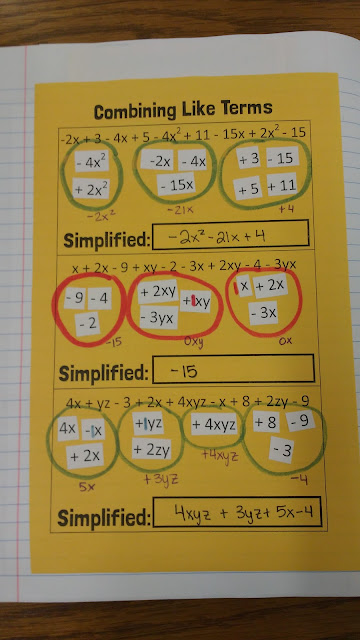 Combining Like Terms
-2x + 3 - 4x + 5 - 4x² + 11 - 15x + 2x² - 15
- 4x² -2x - 4x + 3 - 15
+ 2x² - 15x + 5 + 11
-2x² -21x +4
Simplified: -2x² - 21x + 4
x + 2x - 9 + xy - 2 - 3x + 2xy - 4 - 3yx
- 9 - 4 + 2xy +1xy 1x + 2x
- 2 - 3yx - 3x
-15 0xy 0x
Simplified: -15
4x + yz - 3 + 2x + 4xyz - x + 8 + 2zy - 9
4x -1x +1yz + 4xyz + 8 - 9
+ 2x + 2zy - 3
5x +3yz +4xyz -4
Simplified: 4xyz + 3yz + 5x - 4